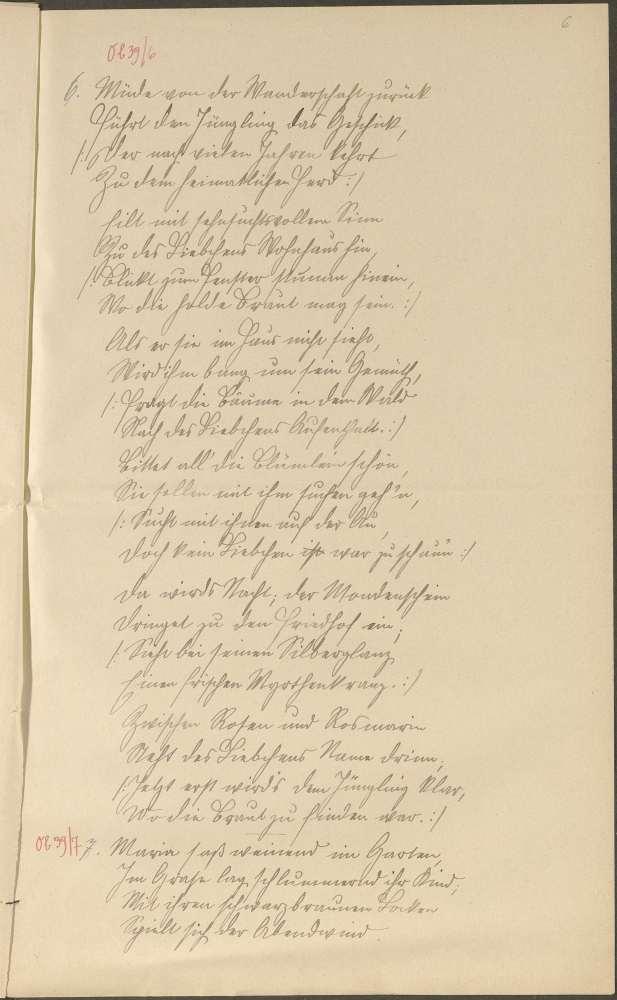 6
OÖ 39/6
6. Müde von der Wanderschaft zurück
Führt den Jüngling das Geschick,
/: Der nach vielen Jahren kehrt
Zu dem heimatlichen Herd :/
Eilt mit sehnsuchtsvollem Sinn
Zu des Liebchens Wohnhaus hin,
/: Blickt zum Fenster stumm hinein,
Wo die holde Braut mag sein. :/
Als er sie im Haus nicht sieht,
Wird ihm bang um sein Gemüth,
/: Fragt die Bäume in dem Wald
Nach des Liebchens Aufenthalt. :/
Bittet all' die Blümlein schön,
Sie sollen mit ihm suchen geh'n,
/: Sucht mit ihnen auf der Au,
Doch kein Liebchen ist war zu schaun :/
Da wirds Nacht; der Mondenschein
Dringet zu den Friedhof ein;
/: Sieht bei seinem Silberglanz
Einen frischen Myrthenkranz. :/
Zwischen Rosen und Rosmarin
Steht des Liebchens Name drinn;
/: Jetzt erst wird's dem Jüngling klar,
Wo die Braut zu finden war. :/
OÖ 39/7 7. Maria saß weinend im Garten,
Im Grase lag schlummernd ihr Kind;
Mit ihren schwarzbraunen Locken
Spielt sich der Abendwind.